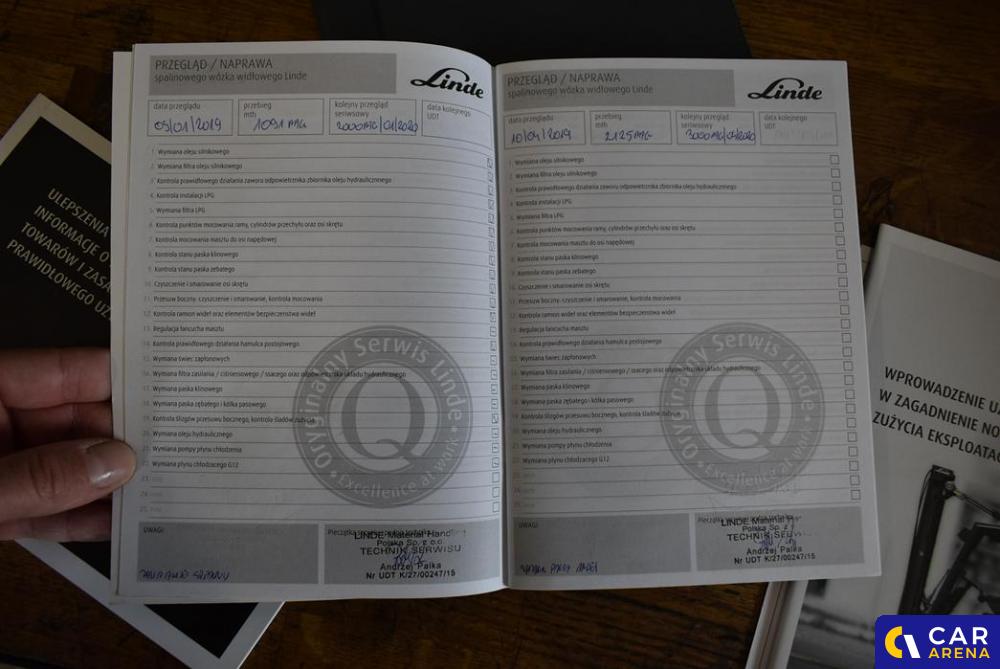 PRZEGLĄD / NAPRAWA
spalinowego wózka widłowego Linde
Linde
data przeglądu
przebieg
mth
kolejny przegląd
seriwsowy
data kolejnego
UDT
03/01/2019
1091 MG
2000MG/01/2020
1. Wymiana oleju silnikowego
2. Wymiana filtra oleju silnikowego
3. Kontrola prawidłowego działania zaworu odpowietrznika zbiornika oleju hydraulicznego
4. Kontrola instalacji LPG
5. Wymiana filtra LPG
6. Kontrola punktów mocowania ramy, cylindrów przechyłu oraz osi skrętu
7. Kontrola mocowania masztu do osi napędowej
8. Kontrola stanu paska klinowego
9. Kontrola stanu paska zębatego
10. Czyszczenie i smarowanie osi skrętu
11. Przesuw boczny- czyszczenie i smarowanie, kontrola mocowania
12. Kontrola ramion wideł oraz elementów bezpieczeństwa wideł
13. Regulacja łańcucha masztu
14. Kontrola prawidłowego działania hamulca postojowego
15. Wymiana świec zapłonowych
16. Wymiana filtra zasilania / ciśnieniowego / ssącego oraz odpowietrznika układu hydraulicznego
17. Wymiana paska klinowego
18. Wymiana paska zębatego i kółka pasowego
19. Kontrola ślizgów przesuwu bocznego, kontrola śladów zużycia
20. Wymiana oleju hydraulicznego
21. Wymiana pompy płynu chłodzenia
22. Wymiana płynu chłodzącego G12
23.
24.
25.
Oryginalny Serwis Linde
Q
• Excellence at work •
UWAGI
LINDE Material Handling
Polska Sp. z o.o.
TECHNIK SERWISU
Andrzej Pałka
Nr UDT K/27/00247/15
PRZEGLĄD / NAPRAWA
spalinowego wózka widłowego Linde
Linde
data przeglądu
przebieg
mth
kolejny przegląd
seriwsowy
data kolejnego
UDT
10/04/2019
2125 MG
1. Wymiana oleju silnikowego
2. Wymiana filtra oleju silnikowego
3. Kontrola prawidłowego działania zaworu odpowietrznika zbiornika oleju hydraulicznego
4. Kontrola instalacji LPG
5. Wymiana filtra LPG
6. Kontrola punktów mocowania ramy, cylindrów przechyłu oraz osi skrętu
7. Kontrola mocowania masztu do osi napędowej
8. Kontrola stanu paska klinowego
9. Kontrola stanu paska zębatego
10. Czyszczenie i smarowanie osi skrętu
11. Przesuw boczny- czyszczenie i smarowanie, kontrola mocowania
12. Kontrola ramion wideł oraz elementów bezpieczeństwa wideł
13. Regulacja łańcucha masztu
14. Kontrola prawidłowego działania hamulca postojowego
15. Wymiana świec zapłonowych
16. Wymiana filtra zasilania / ciśnieniowego / ssącego oraz odpowietrznika układu hydraulicznego
17. Wymiana paska klinowego
18. Wymiana paska zębatego i kółka pasowego
19. Kontrola ślizgów przesuwu bocznego, kontrola śladów zużycia
20. Wymiana oleju hydraulicznego
21. Wymiana pompy płynu chłodzenia
22. Wymiana płynu chłodzącego G12
Oryginalny Serwis Linde
Q
• Excellence at work •
UWAGI
LINDE Material
Polska Sp. z
TECHNIK SERWISU
Andrzej Pałka
Nr UDT K/27/00247/15
ULEPSZENIA
INFORMACJE O
TOWARÓW I
PRAWIDŁOWEGO
WPROWADZENIE
W ZAGADNIENIE
ZUŻYCIA
CAR
ARENA